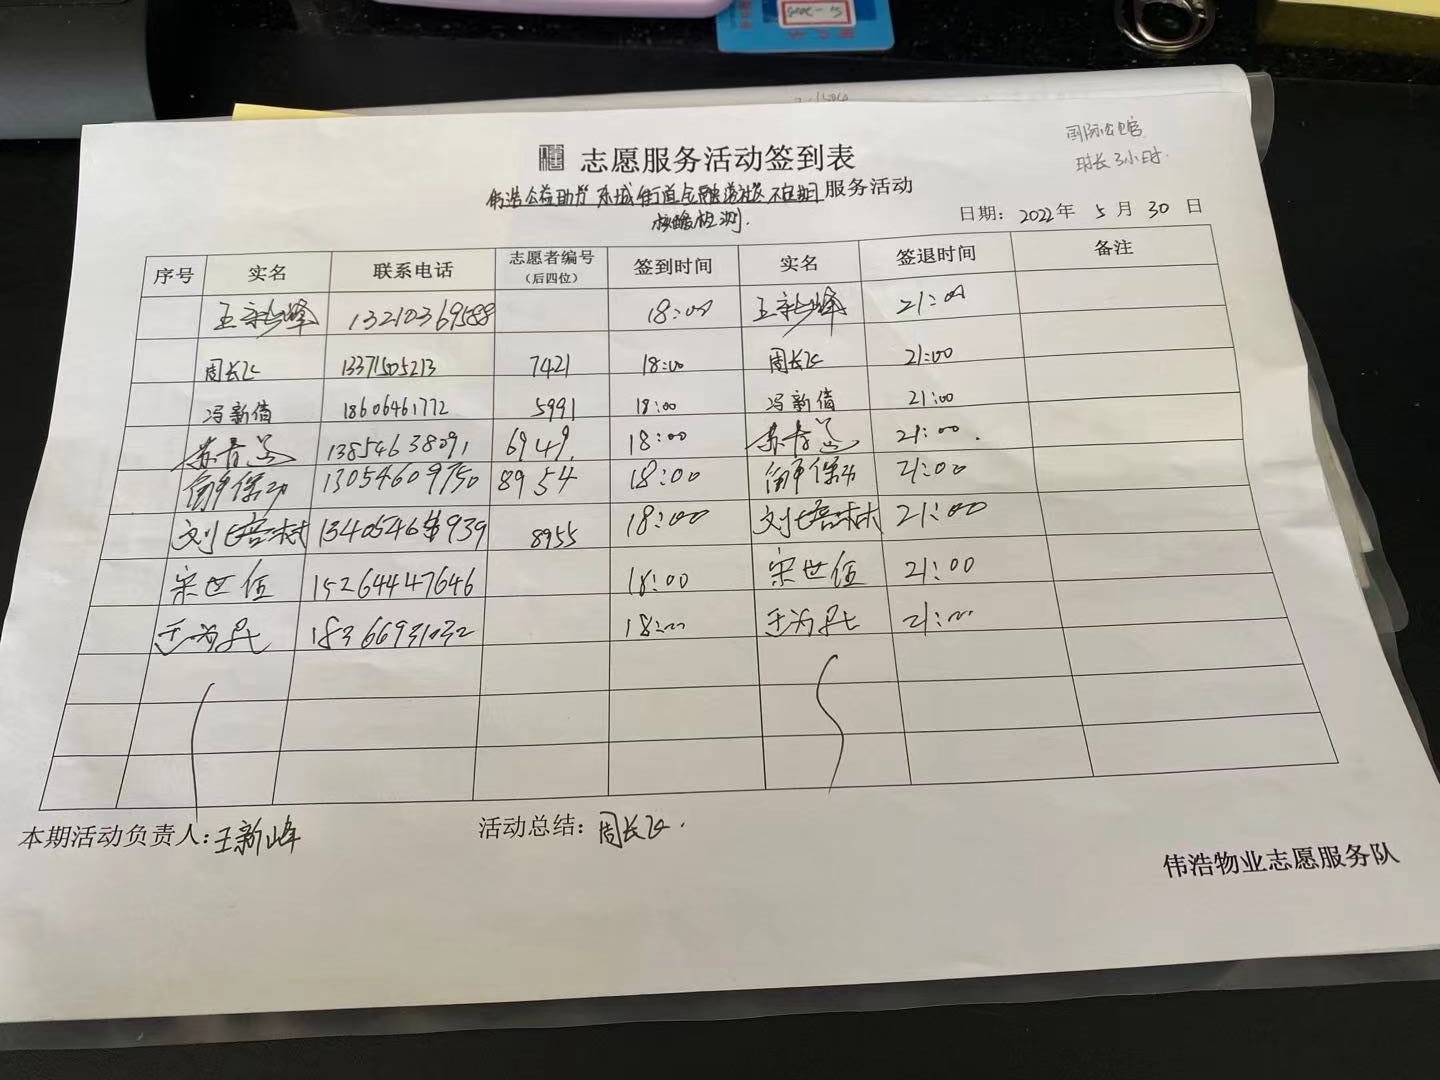 国际公馆
时长3小时.
志愿服务活动签到表
伟浩公益助力"东城街道金融港社区不定期服务活动
核酸检测.
日期: 2022年 5月 30日
序号 实名 联系电话 志愿者编号(后四位) 签到时间 实名 签退时间 备注
王新峰 13210369588 18:00 王新峰 21:00
周长飞 13371505213 7421 18:00 周长飞 21:00
冯新倩 18606461772 5991 18:00 冯新倩 21:00
13854638091 6949. 18:00 21:00.
13054609750 8954 18:00 21:00
刘培林 1340546 939 8955 18:00 刘培林 21:00
宋世伍 15264447646 18:00 宋世伍 21:00
18366931032 18:00 21:00
本期活动负责人:王新峰 活动总结: 周长飞.
伟浩物业志愿服务队